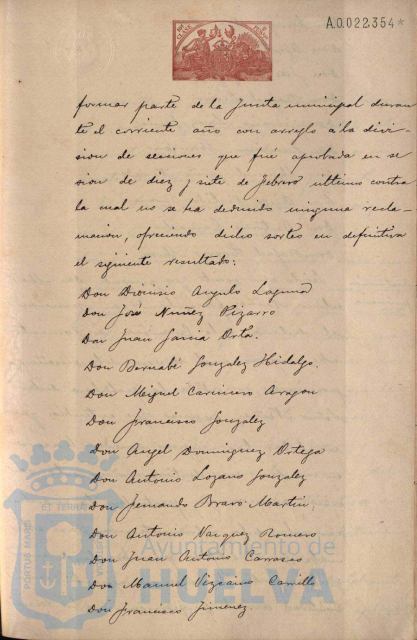 A.0.022.354*
formar parte de la Junta municipal duran
te el corriente año con arreglo á la divi
sion de secciones que fué aprobada en se
sion de diez y siete de Febrero último contra
la cual no se ha deducido ninguna recla-
macion, ofreciendo dicho sorteo en definitiva
el siguiente resultado:
Don Dionisio Angulo Laguna
Don José Nuñez Pizarro
Don Juan Garcia Orta.
Don Bernabé Gonzalez Hidalgo.
Don Miguel Carinero Aragon
Don Francisco Gonzalez
Don Angel Dominguez Ortega
Don Antonio Lozano Gonzalez
Don Fernando Bravo Martin.
Don Antonio Vazquez Romero
Don Juan Antonio Carrasco
Don Manuel Vizcaino Carrillo
Don Francisco Jimenez
PORTUS MARIS
ET TERRÆ
Ayuntamiento de
HUELVA